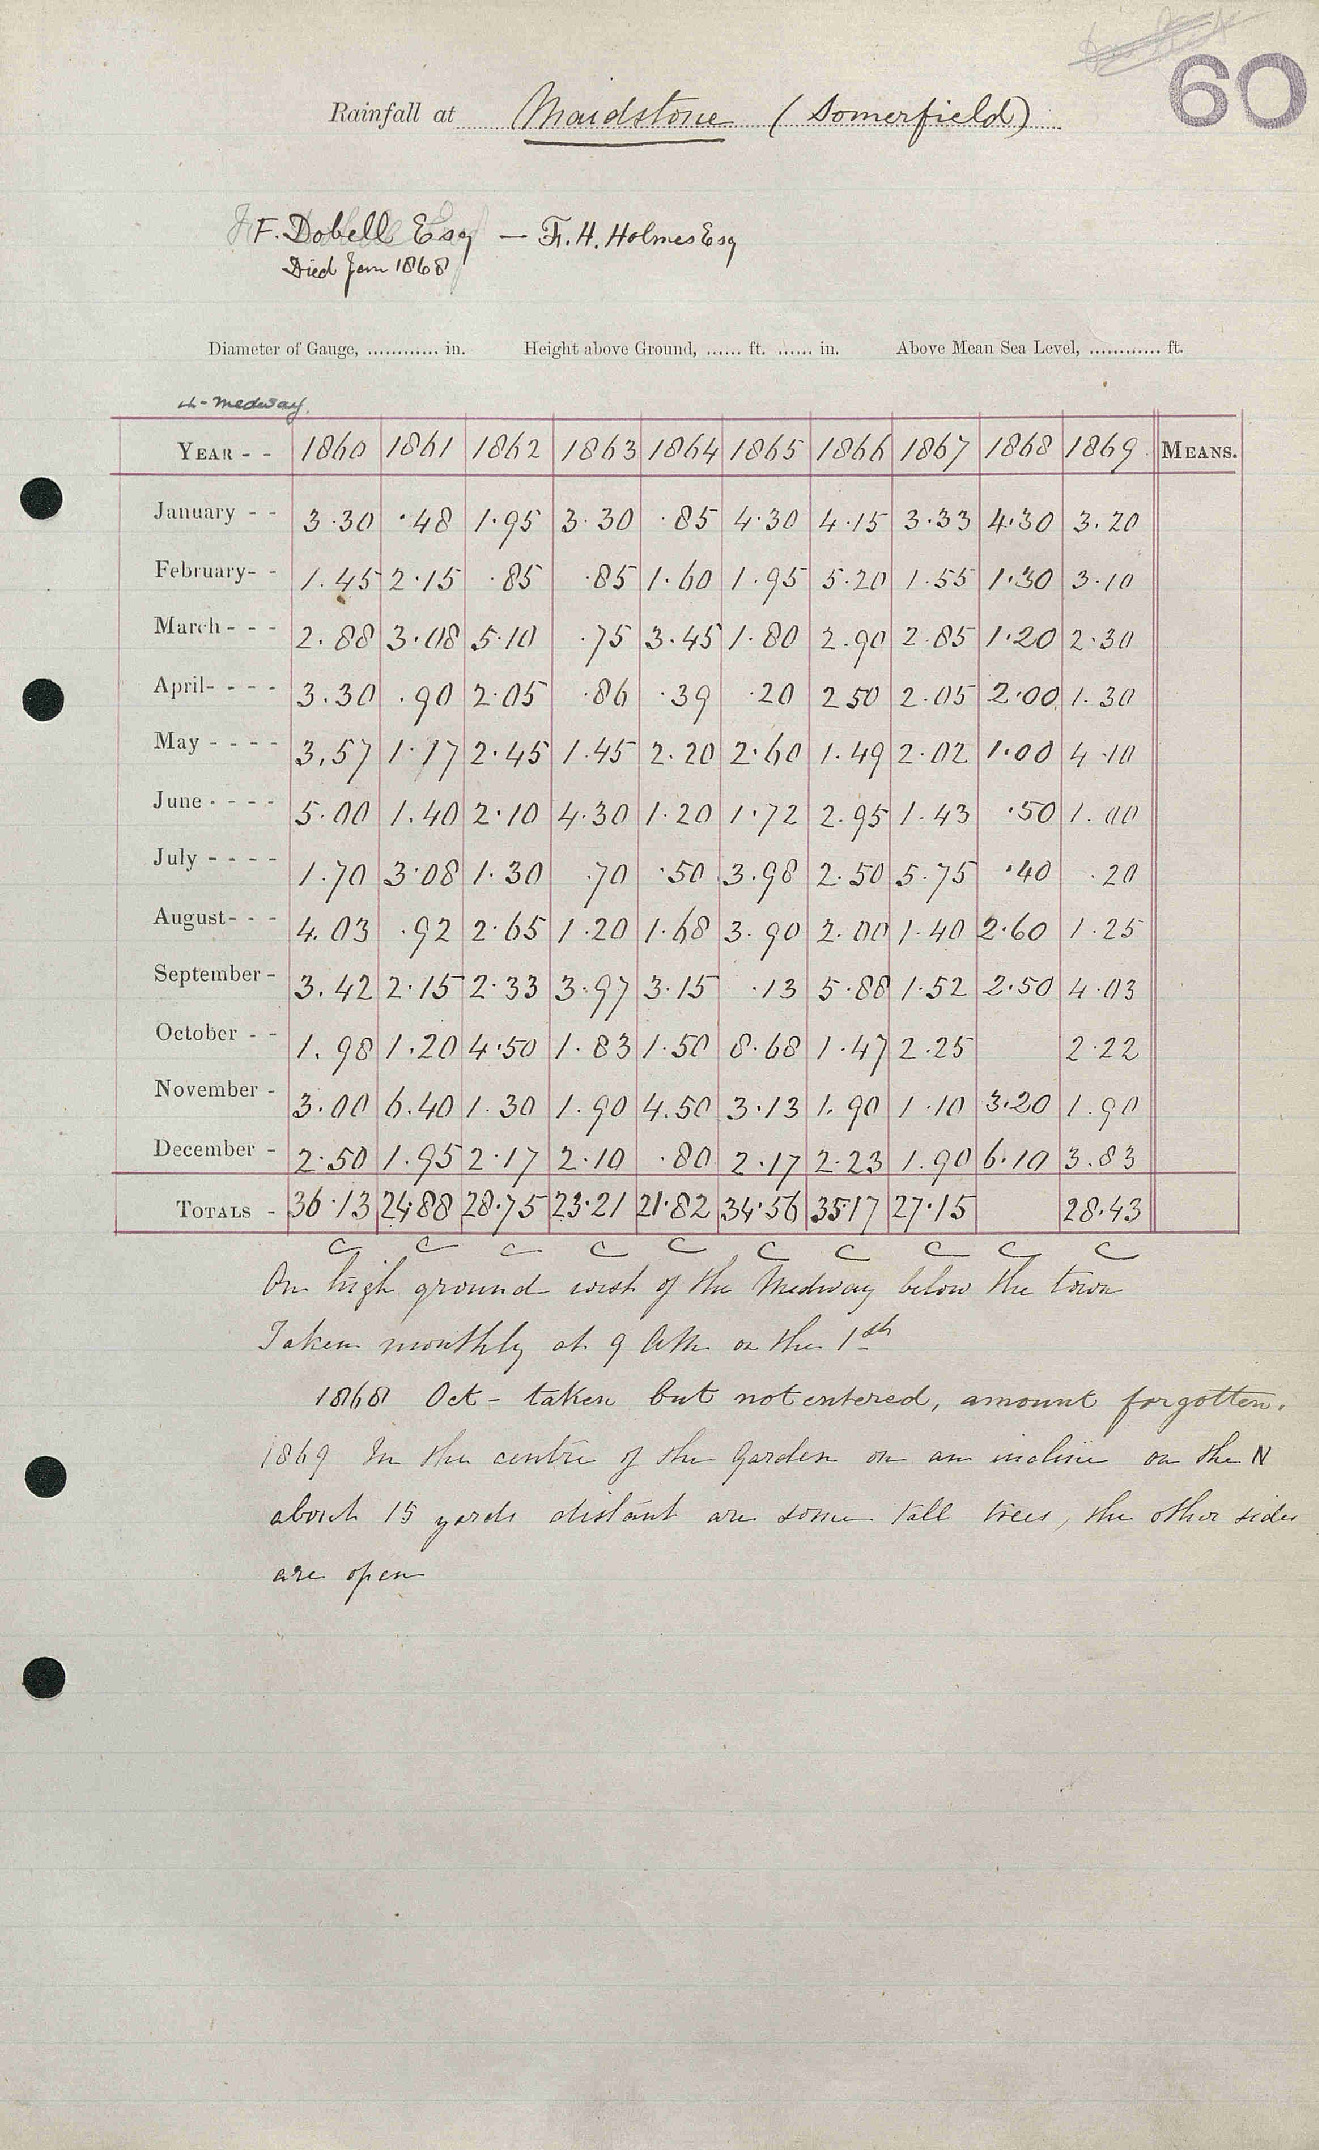 60
Rainfall at Maidstone (Somerfield)
F. Dobell Esq — F. H. Holmes Esq
Died Jan 1868
Diameter of Gauge, ............ in. Height above Ground, ...... ft. ...... in. Above Mean Sea Level, ............ ft.
Medway
YEAR - - 1860 1861 1862 1863 1864 1865 1866 1867 1868 1869 MEANS.
January - - 3.30 .48 1.95 3.30 .85 4.30 4.15 3.33 4.30 3.20
February- - 1.45 2.15 .85 .85 1.60 1.95 5.20 1.55 1.30 3.10
March - - - 2.88 3.08 5.10 .75 3.45 1.80 2.90 2.85 1.20 2.30
April- - - - 3.30 .90 2.05 .86 .39 .20 2 50 2.05 2.00 1.30
May - - - - 3.57 1.17 2.45 1.45 2.20 2.60 1.49 2.02 1.00 4.10
June - - - - 5.00 1.40 2.10 4.30 1.20 1.72 2.95 1.43 .50 1.00
July - - - - 1.70 3.08 1.30 .70 .50 3.98 2.50 5.75 .40 .20
August- - - 4.03 .92 2.65 1.20 1.68 3.90 2.00 1.40 2.60 1.25
September - 3.42 2.15 2.33 3.97 3.15 .13 5.88 1.52 2.50 4.03
October - - 1.98 1.20 4.50 1.83 1.50 8.68 1.47 2.25 2.22
November - 3.00 6.40 1.30 1.90 4.50 3.13 1.90 1.10 3.20 1.90
December - 2.50 1.95 2.17 2.10 .80 2.17 2.23 1.90 6.10 3.83
TOTALS - 36.13 24.88 28.75 23.21 21.82 34.56 35.17 27.15 28.43
C C C C C C C C C C
On high ground west of the Medway below the town
Taken monthly at 9 AM on the 1st
1868 Oct - taken but not entered, amount forgotten.
1869 In the centre of the Garden on an incline on the N
about 15 yards distant are some tall trees, the other sides
are open